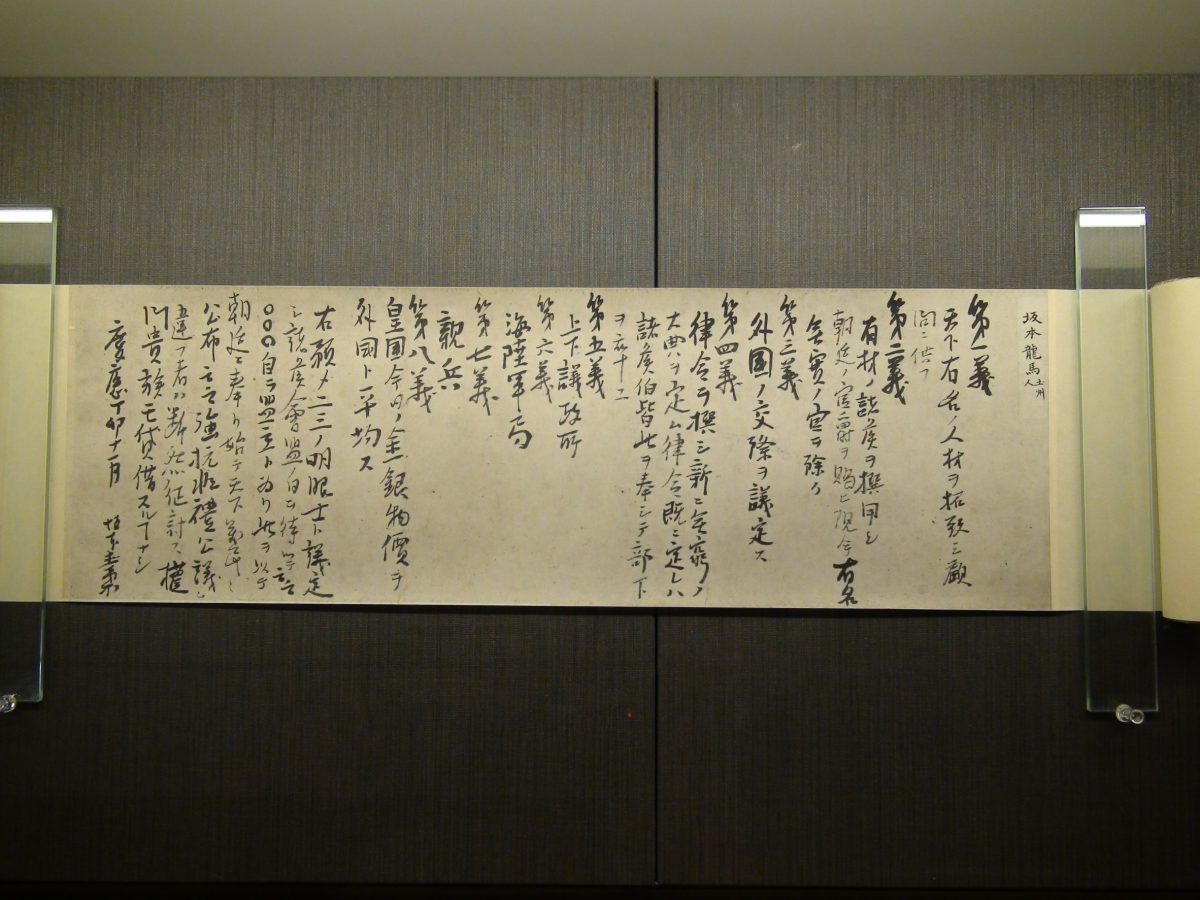 坂本龍馬 土州人
第一義
天下有名ノ人材ヲ招致シ顧
問ニ供フ
第二義
有材ノ諸侯ヲ撰用シ
朝廷ノ官爵ヲ賜ヒ現今有名
無實ノ官ヲ除ク
第三義
外國ノ交際ヲ議定ス
第四義
律令ヲ撰シ新ニ無窮ノ
大典ヲ定ム律令既ニ定レハ
諸侯伯皆此ヲ奉シテ部下
ヲ率ユ
第五義
上下議政所
第六義
海陸軍局
第七義
親兵
第八義
皇國今日ノ金銀物價ヲ
外國ト平均ス
右預メ二三ノ明眼士ト議定
シ諸侯會盟ノ日ヲ待ツテ云云
〇〇〇自ラ盟主ト為リ此ヲ以テ
朝廷ニ奉リ始テ天下萬民ニ
公布云云強抗非禮公議ニ
違フ者ハ断然征討ス權
門貴族モ貸借スルコトナシ
慶應丁卯十一月 坂本直柔